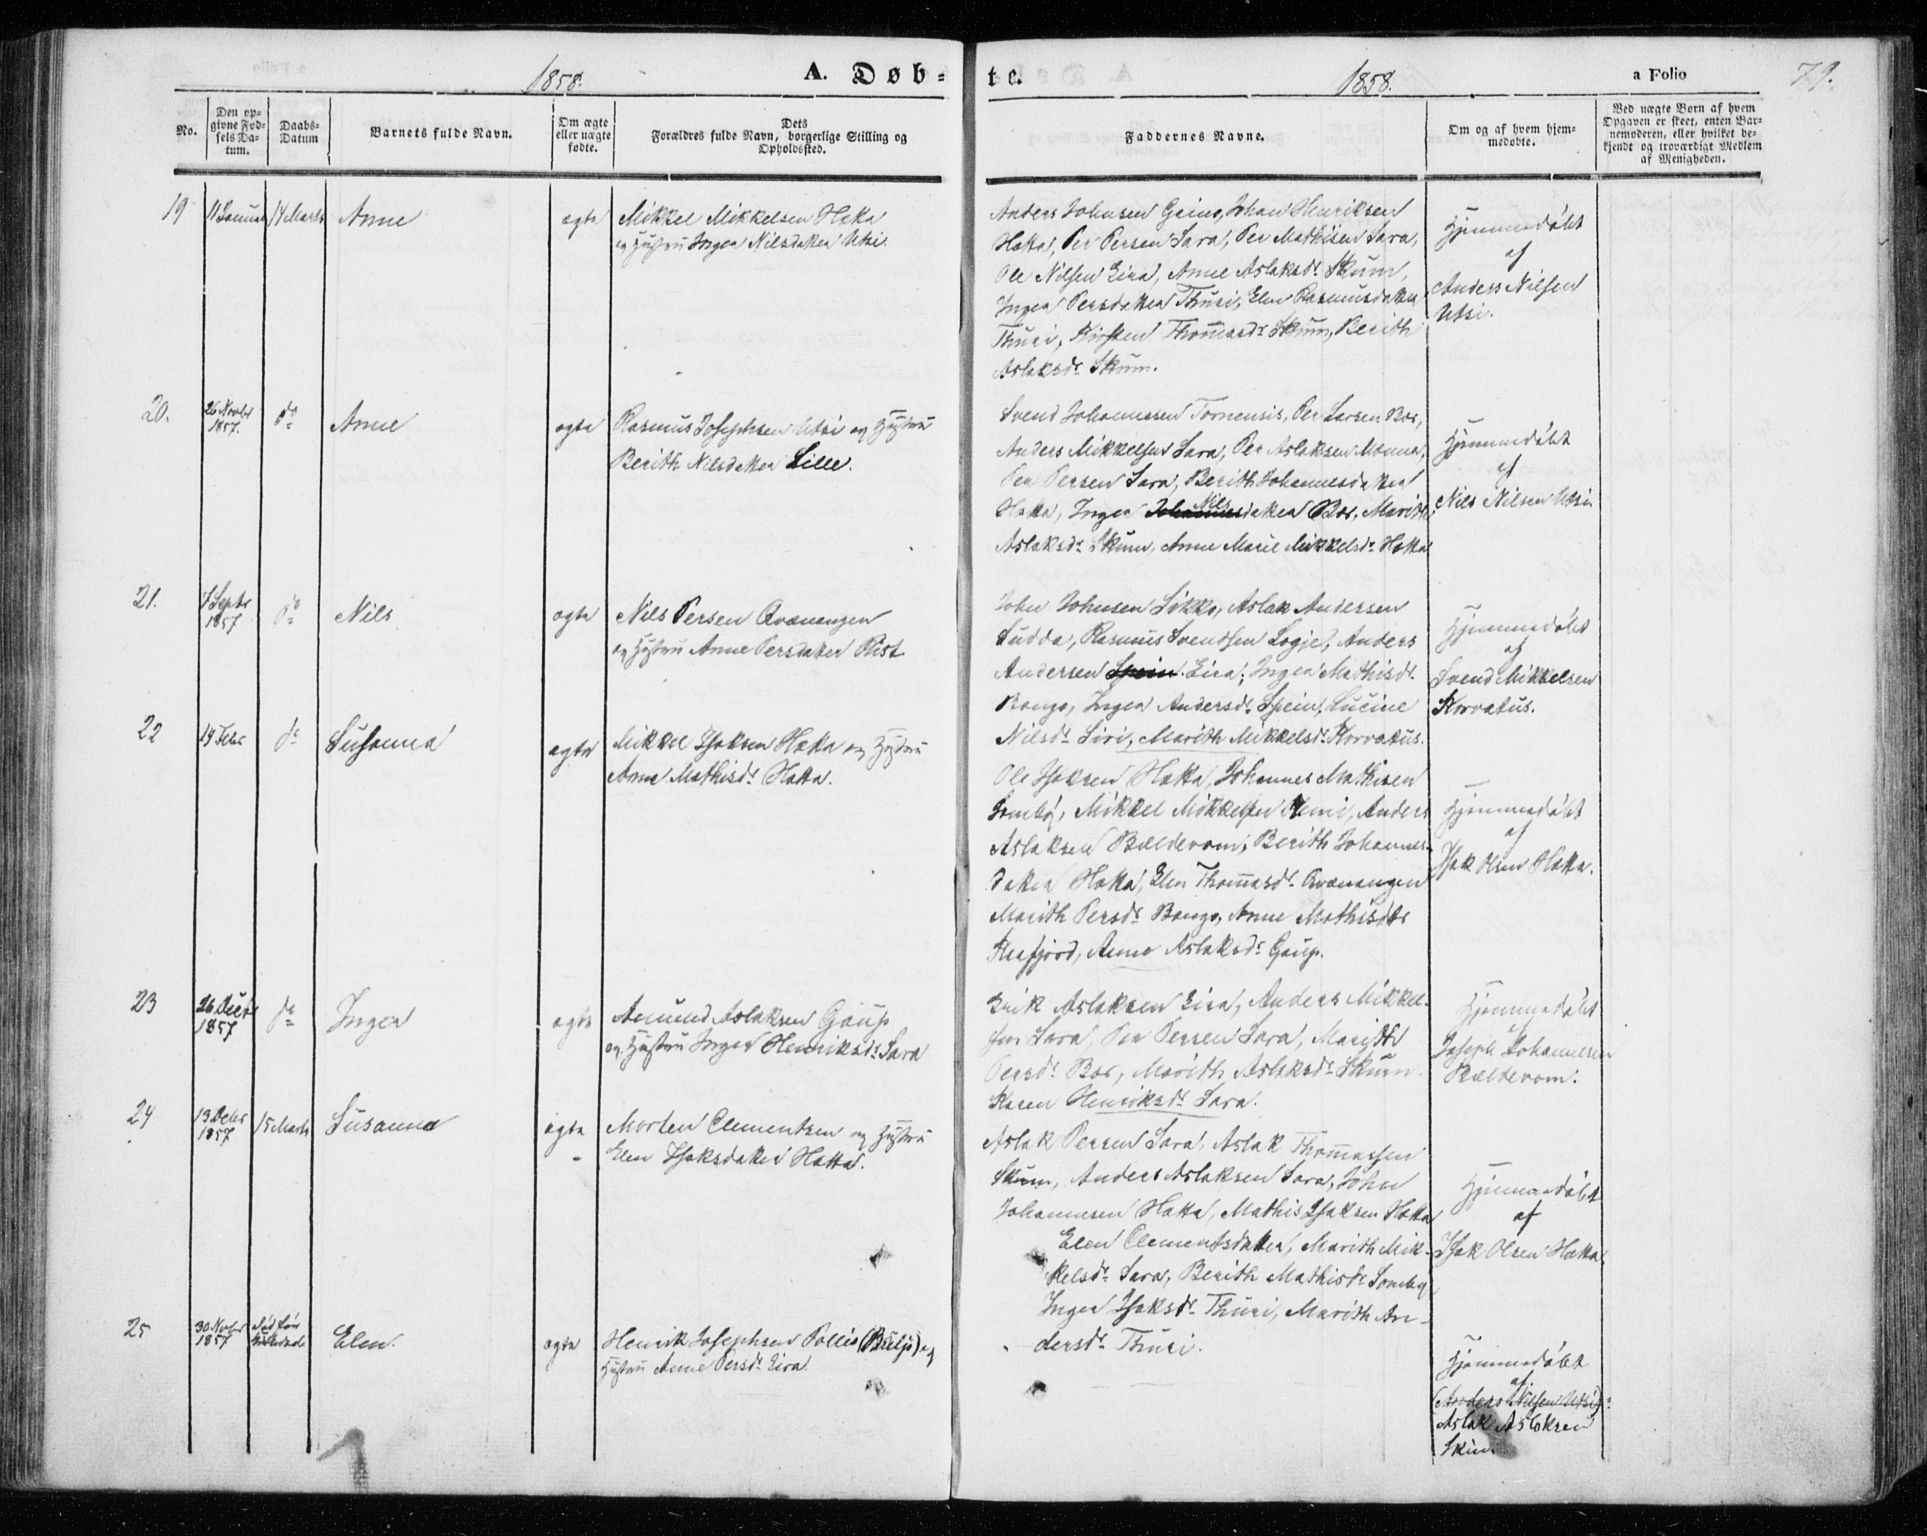 1858.
A. Døb=
te.
1858.
a Folio
79.
No.
Den op-
givne Fød-
sels Da-
tum.
Daabs-
Datum
Barnets fulde Navn.
Om ægte
eller uægte
fødte.
Dets
Forældres fulde Navn, borgerlige Stilling og
Opholdssted.
Faddernes Navne.
Om og af hvem hjem-
medøbte.
Ved uægte Børn af hvem
Opgaven er skeet, enten Bar-
nemoderen, eller hvilket be-
kjendt og troværdigt Medlem
af Menigheden.
19
11 Januar
14 Marts
Anne
ægte
Mikkel Mikkelsen Hætta
og Hustru Inger Nilsdatter Utsi.
Anders Johnsen Gaino, Johan Henriksen
Hætta, Per Persen Sara, Per Mathisen Sara,
Ole Nilsen Eira, Anne Aslaksdr Skum,
Inger Persdatter Thuri, Elen Rasmusdatter
Thuri, Kirsten Thomasdr Skum, Berith
Aslaksdr Skum.
Hjemmedøbt
af
Anders Nilsen
Utsi.
20.
26 Novbr
1857.
do
Anne
ægte
Rasmus Josephsen Utsi og Hustru
Berith Nilsdatter Lille.
Svend Johannesen Tornensis, Per Larsen Bær,
Anders Mikkelsen Sara, Per Aslaksen Monna,
Per Persen Sara, Berith Johannesdatter
Hætta, Inger Nilsdatter Bær, Marith
Aslaksdr Skum, Anne Marie Mikkelsdr Hætta
Hjemmedøbt
af
Nils Nilsen Utsi
21.
7 Septbr
1857
do
Nils
ægte
Nils Persen Qvænangen
og Hustru Anne Persdatter Rist
John Johnsen Løkke, Aslak Andersen
Sudda, Rasmus Svendsen Logje, Anders
Andersen Spein Eira, Inger Mathisdr
Bongo, Inger Andersdr Spein, Lucine
Nilsdr Siri, Marith Mikkelsdr Korvatus.
Hjemmedøbt
af
Svend Mikkelsen
Korvatus.
22
14 Febr
do
Susanna
ægte
Mikkel Isaksen Hætta og Hustru
Anne Mathisdr Hætta.
Ole Isaksen Hætta, Johannes Mathisen
Somby, Mikkel Mikkelsen Kemi, Anders
Aslaksen Bældevom, Berith Johannes-
datter Hætta, Elen Thomasdr Qvænangen
Marith Persdr Bongo, Anne Mathisdtr
Reafjord, Anne Aslaksdr Gaup.
Hjemmedøbt
af
Isak Olsen Hætta.
23
26 Decbr
1857
do
Inger
ægte
Amund Aslaksen Gaup
og Hustru Inger Henriksdr Sara
Erik Aslaksen Eira, Anders Mikkel-
sen Sara, Per Persen Sara, Marith
Persdr Bær, Marith Aslaksdr Skum
Karen Henriksdr Sara.
Hjemmedøbt
af
Joseph Johannesen
Bældevom.
24
13 Debr
1857
15 Marts
Susanna
ægte
Morten Clementsen og Hustru
Elen Isaksdatter Hætta.
Aslak Persen Sara, Aslak Thomassen
Skum, Anders Aslaksen Sara, John
Johannesen Hætta, Mathis Isaksen Hætta
Elen Clementsdatter, Marith Mik-
kelsdr Sara, Berith Mathisdr Somby
Inger Isaksdr Thuri, Marith An-
dersdr Thuri.
Hjemmedøbt
af
Isak Olsen Hætta.
25
30 Novbr
1857
død før
Elen.
ægte
Henrik Josephsen Pollio (Buljo) og
Hustru Anne Persdr Eira.
Hjemmedøbt
af
(Anders Nilsen Utsi)
Aslak Aslaksen
Skum.